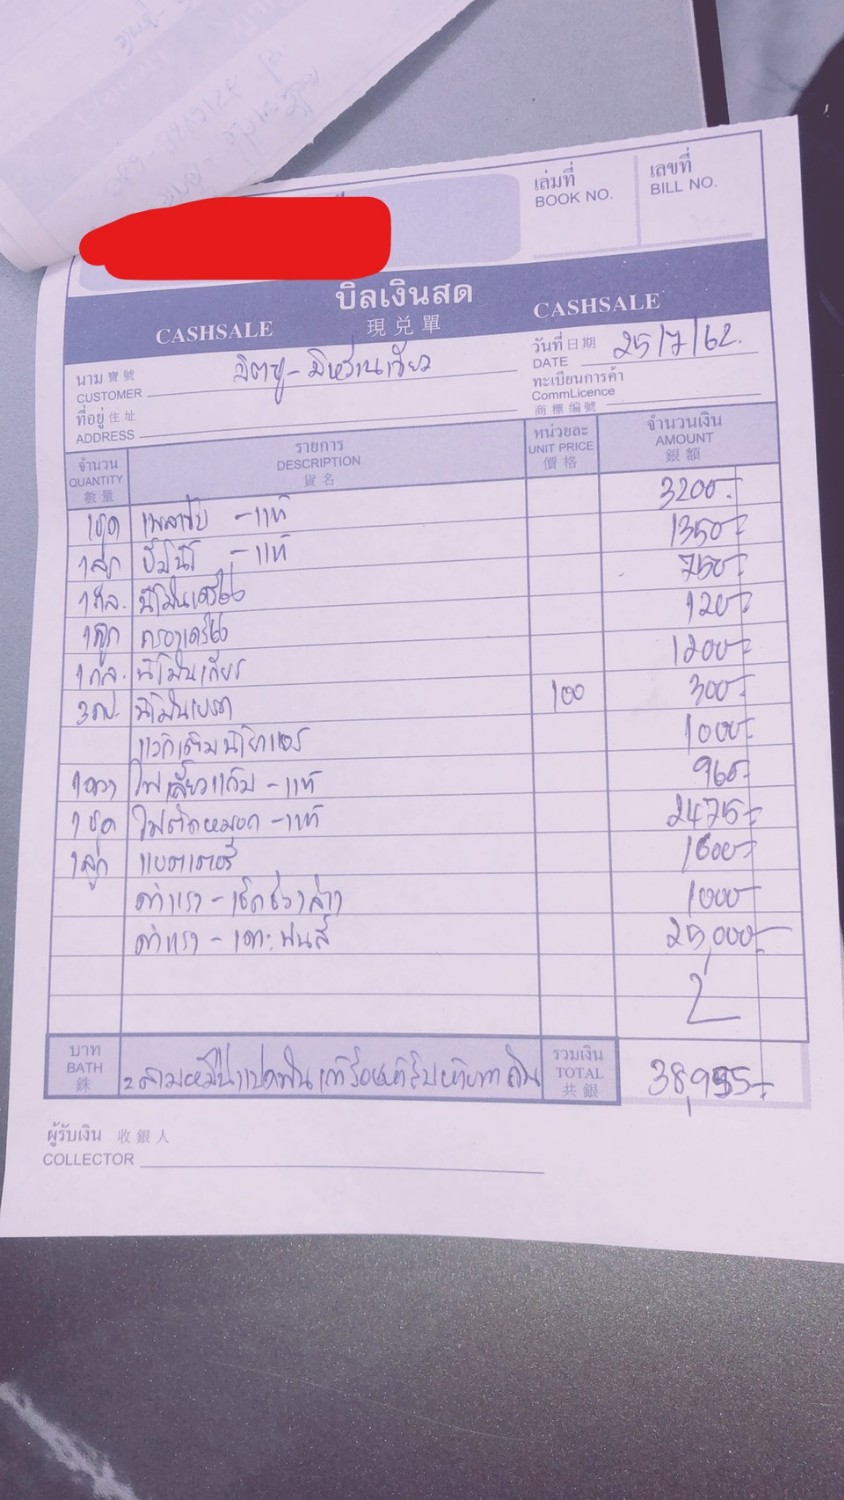 เล่มที่ เลขที่
BOOK NO. BILL NO.
บิลเงินสด
CASHSALE 現兑單 CASHSALE
นาม 寶號 วันที่ 日期 25/7/62.
CUSTOMER DATE
ทะเบียนการค้า
ที่อยู่ 住址 CommLicence
ADDRESS 商標編號
จำนวน รายการ หน่วยละ จำนวนเงิน
QUANTITY DESCRIPTION UNIT PRICE AMOUNT
數量 貨名 價格 銀額
1ชุด - แท้ 3200-
1ลูก ปั๊มน้ำ - แท้ 1350-
1กล. น้ำมันเครื่อง 750-
1ลูก กรองเครื่อง 120-
1กล. น้ำมันเกียร์ 1200-
น้ำมันเบรค 100 300-
1000-
ไฟเลี้ยวแก้ม - แท้
1ชุด ไฟตัดหมอก - แท้ 2475-
1ลูก แบตเตอรี่ 1600-
ค่าแรง - เช็คช่วงล่าง 1000-
ค่าแรง - 25,000-
บาท รวมเงิน
BATH TOTAL 38,955-
銖 共銀
ผู้รับเงิน 收銀人
COLLECTOR